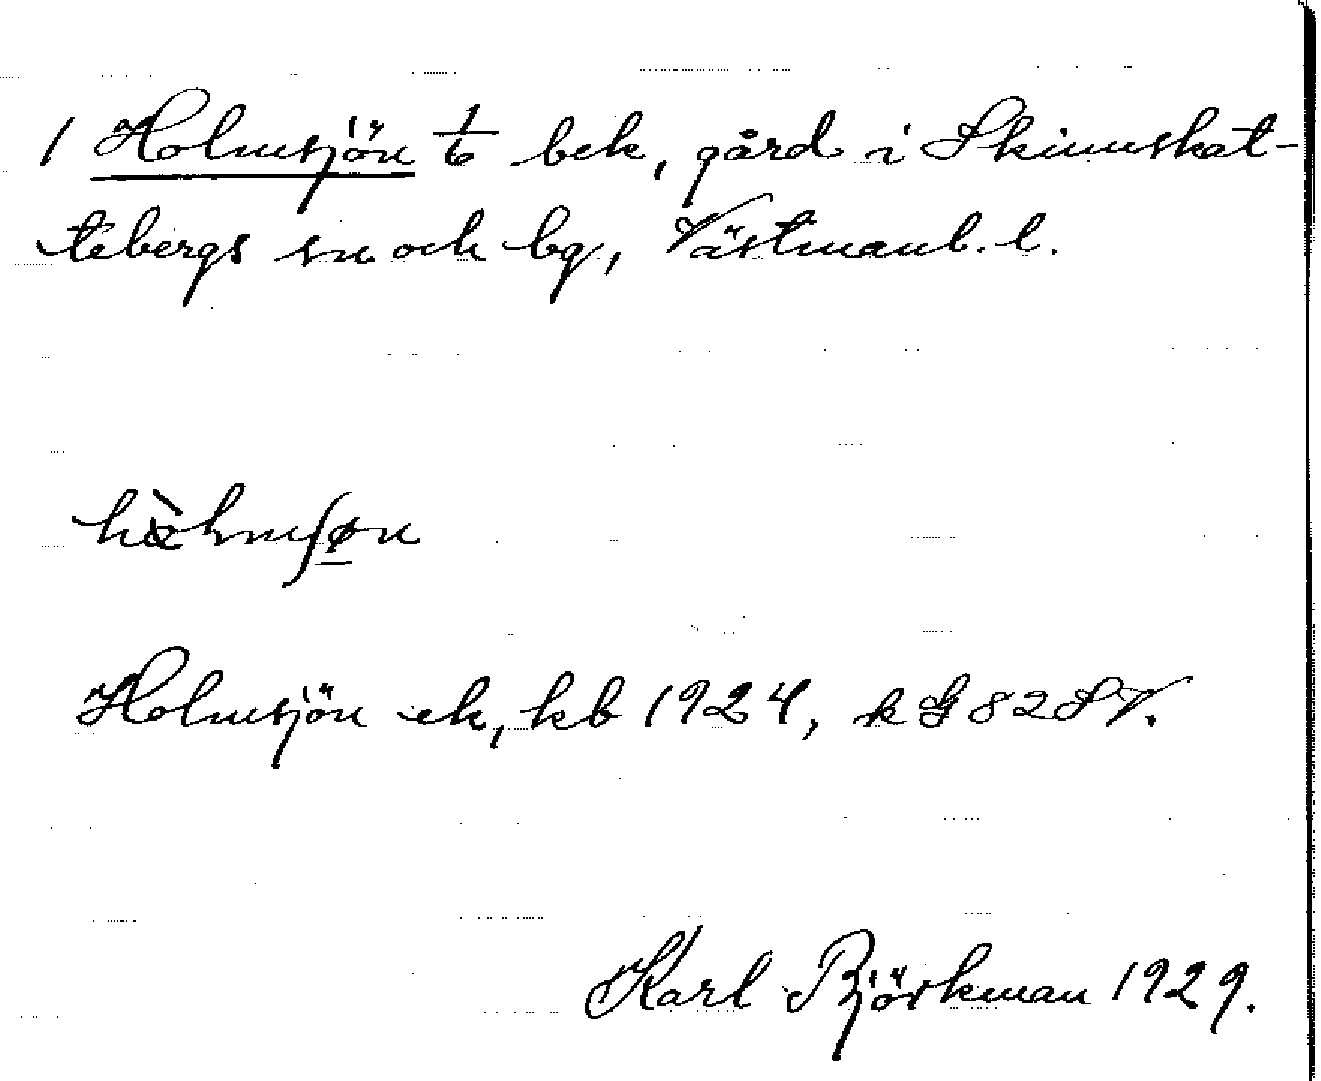 1 Holmsjön 1/6 bek, gård i Skinnskat-
tebergs sn och bg, Västmanl. l.
hòlmʃøn
Holmsjön ek, kb 1924, k G 82 SV.
Karl Björkman 1929.